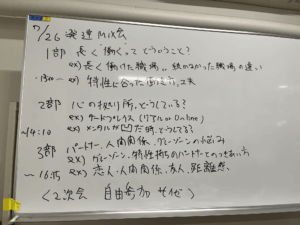 7/26 発達MIX会
1部 長く働くってどういうこと?
ex) 長く働けた職場、続かなかった職場の違い
ex) 特性に合った働き方、工夫
2部 心の拠り所、どうしている?
ex) サードプレイス (リアル or Online)
~14:10 ex) メンタルが凹だ時、どうしてる?
3部 パートナー、人間関係、グレーゾーンの悩み
ex) グレーゾーン、特性持ちのパートナーとのつきあい方
ex) 恋人・人間関係、友人、距離感
<2次会 自由参加 サイゼ>